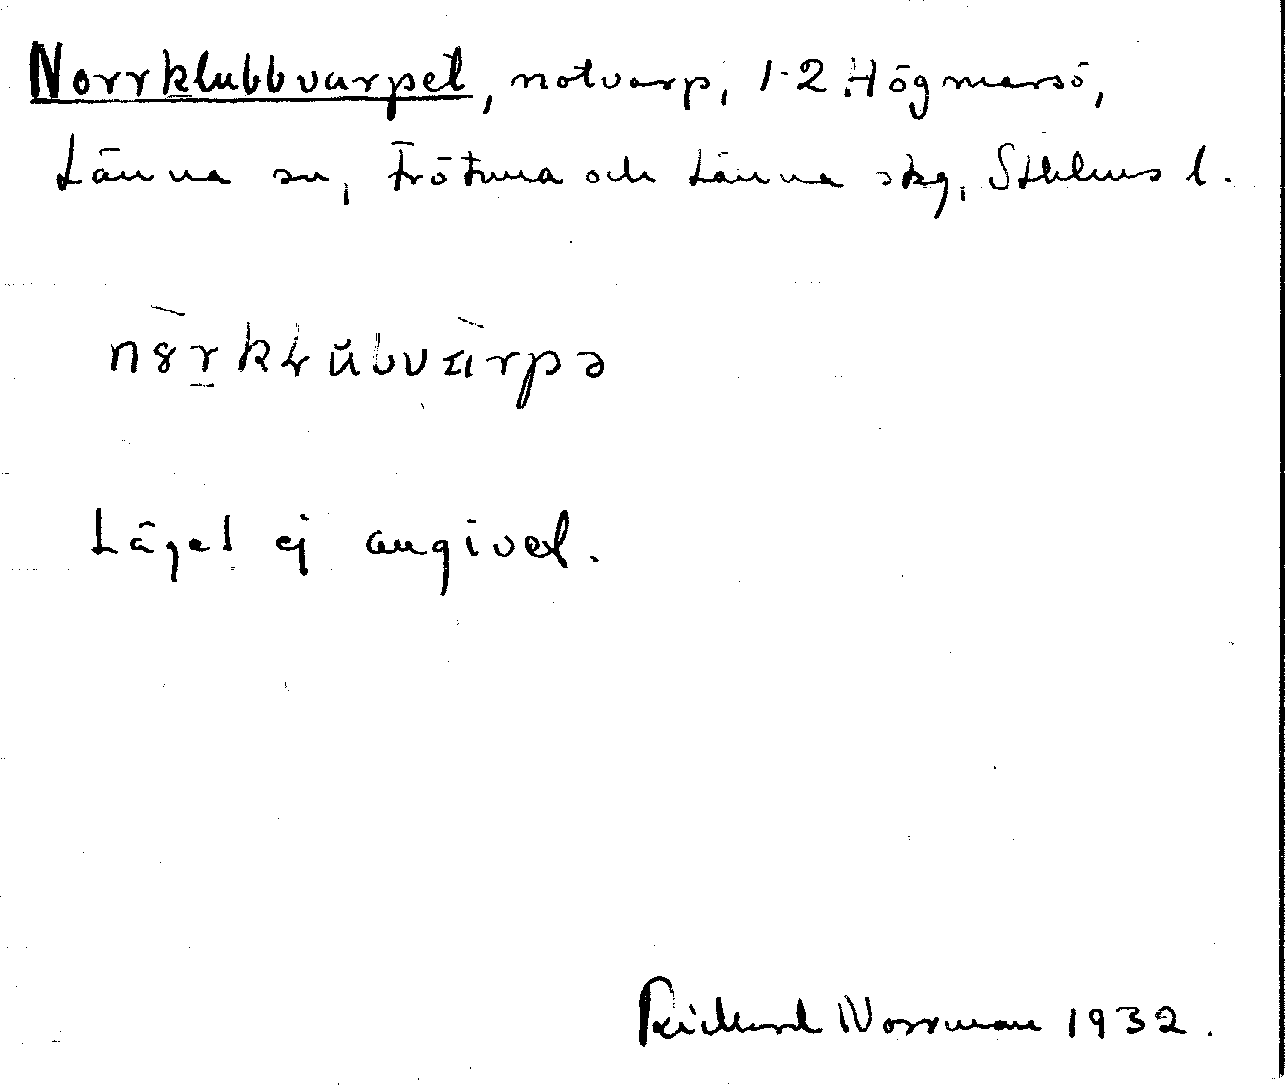 Norrklubbvarpet, notvarp, 1-2 Högmarsö,
Länna sn, Frötuna och Länna skg, Sthlms l.
Läget ej angivet.
Rickard Norrman 1932.